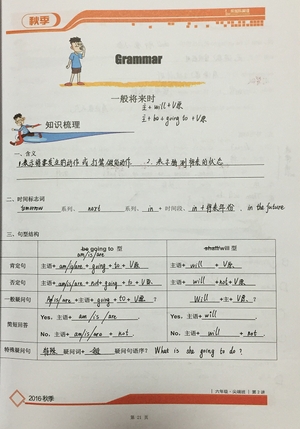 秋季
Grammar
一般将来时
主+will+V原
主+be+going to+V原
知识梳理
一、含义
1.表示将要发生的动作或打算做的动作 2.表示预测将来的状态
二、时间标志词
tomorrow 系列、 next 系列、 in + 时间段、 in + 将来年份、 in the future
三、句型结构
be going to 型 shall/will 型
am/is/are
肯定句 主语+ am/is/are + going + to + V原 主语+ will + V原
否定句 主语+ am/is/are + not + going + to + V原 主语+ will + not + V原
一般疑问句 Am/is/are +主语+ going + to + V原 ? Will +主语+ V原 ?
简短回答 Yes, 主语+ am / is / are . Yes, 主语+ will .
No, 主语+ am/is/are + not . No, 主语+ will + not .
特殊疑问句 特殊 疑问词+ 一般 疑问句语序? What is she going to do ?
2016 秋季
第 11 页